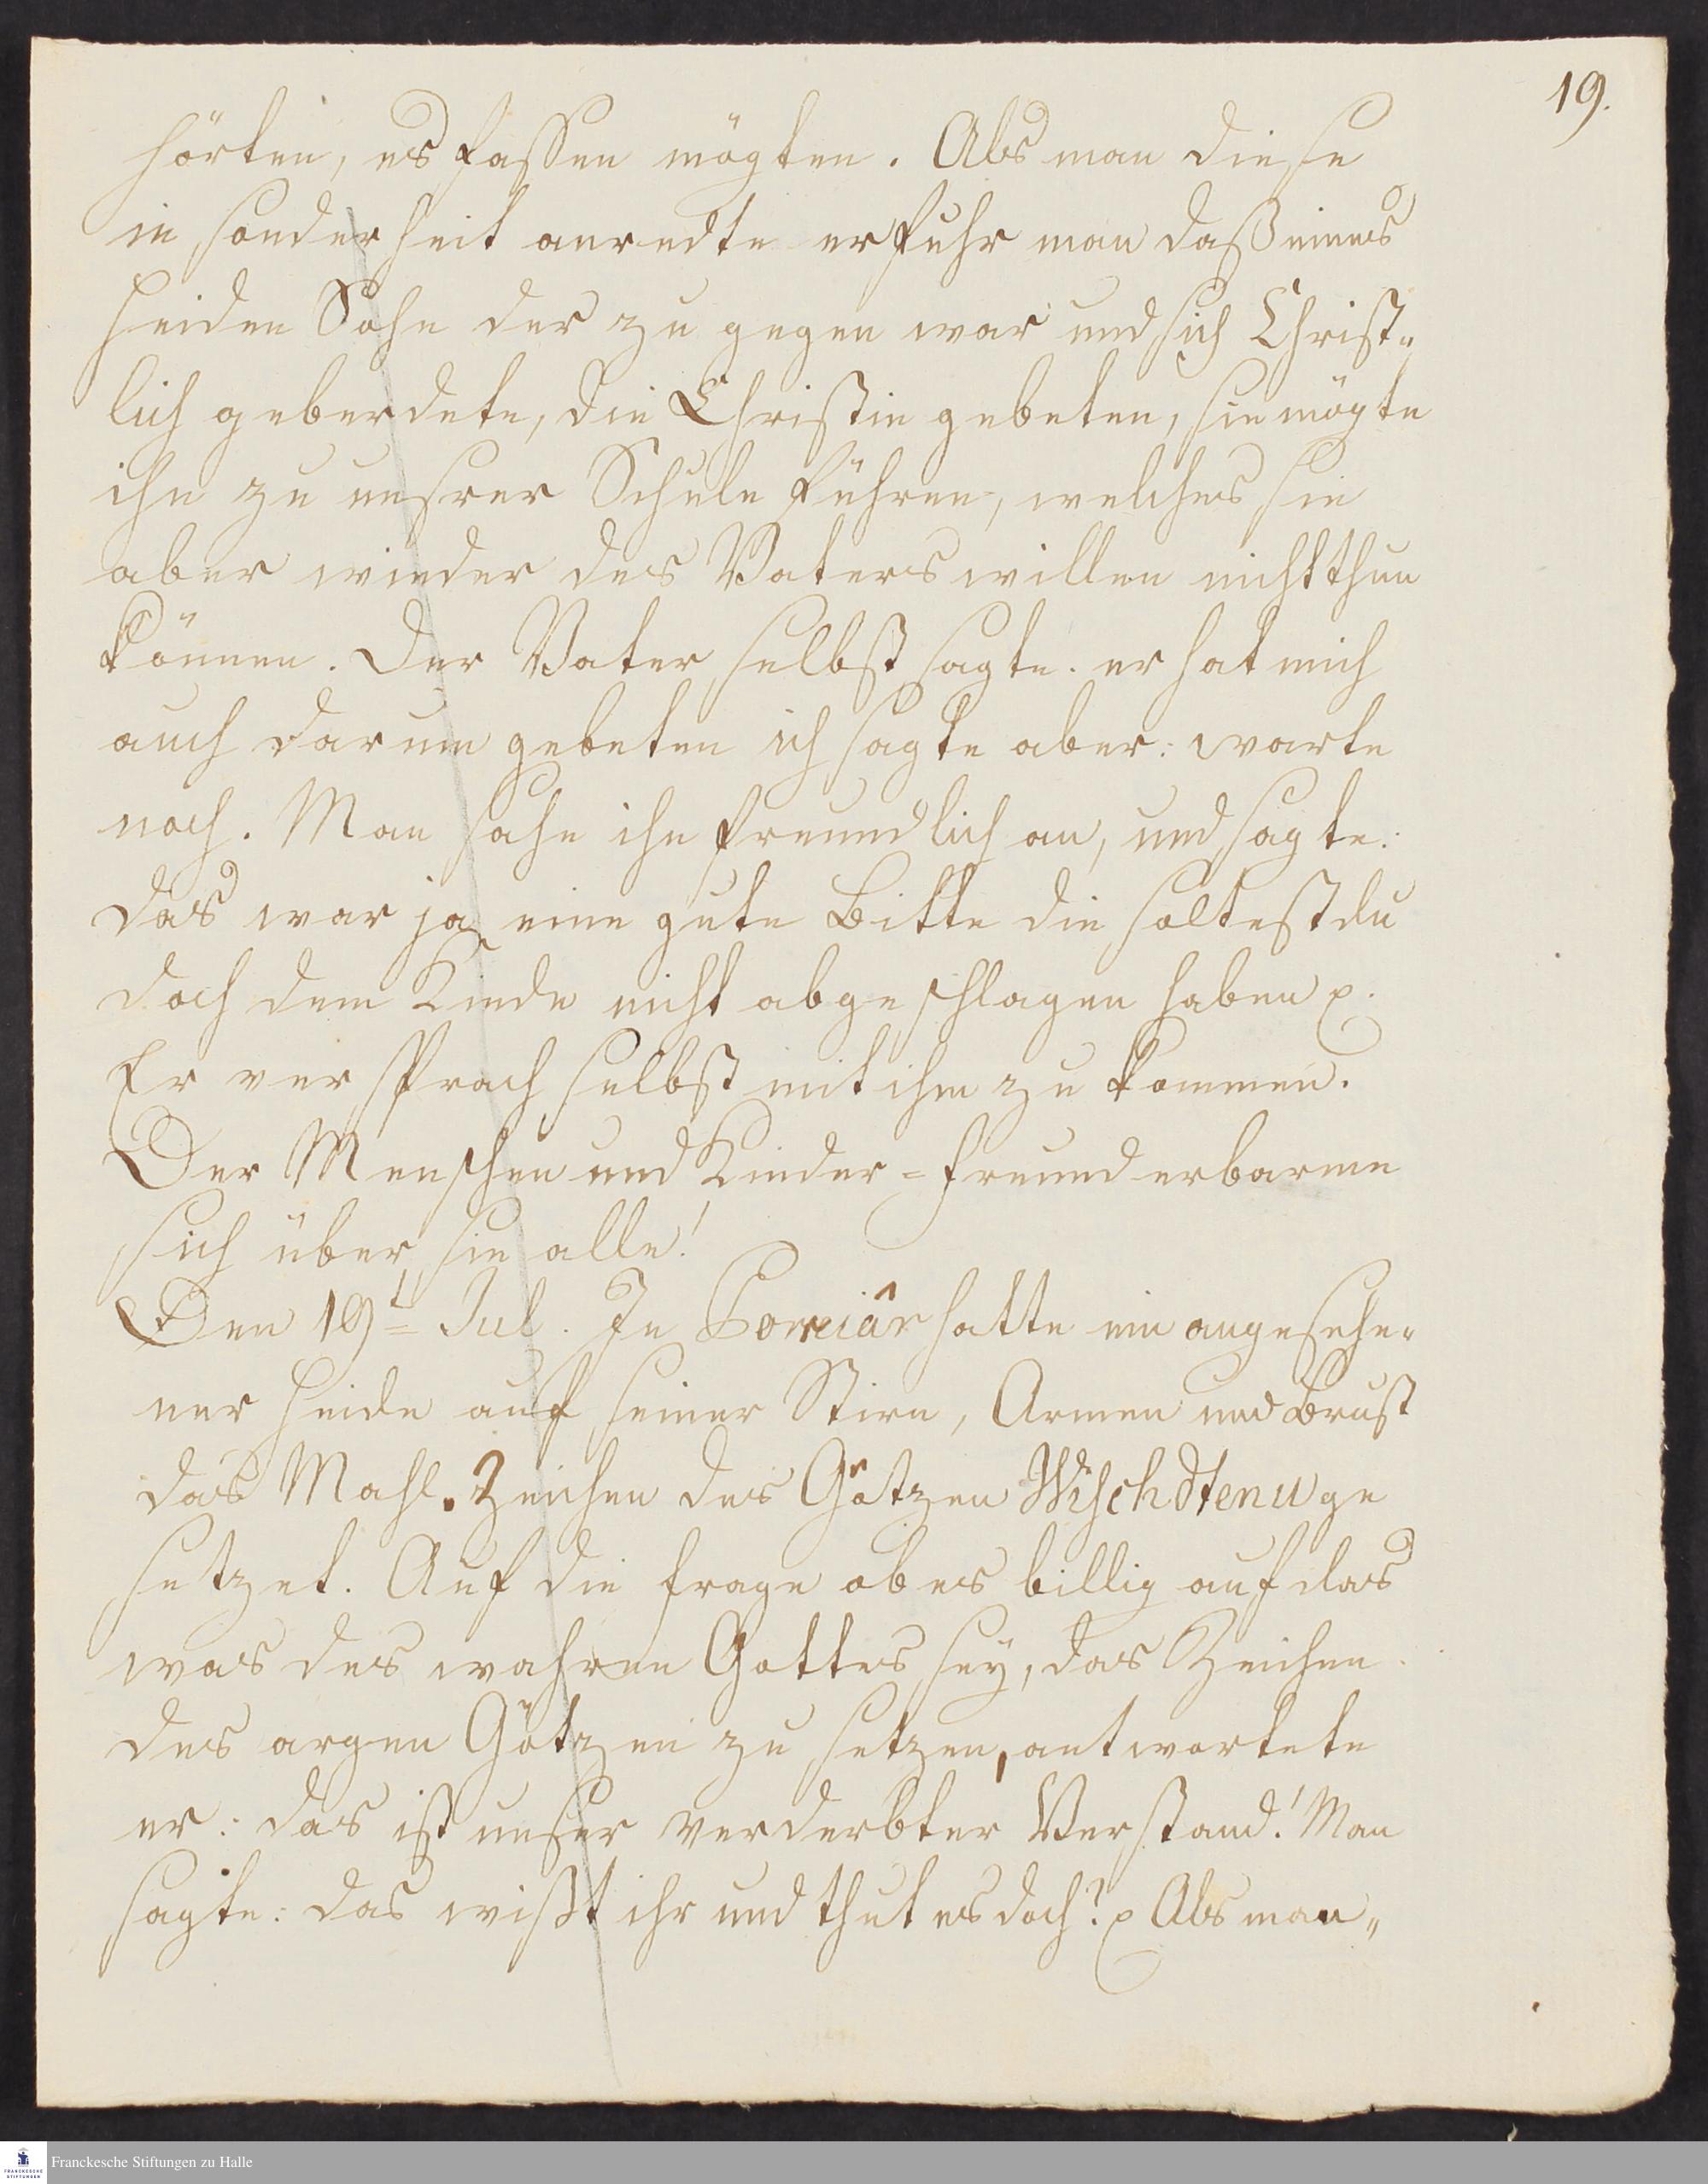 19.
hörten, es fassen mögten. Als man diese
in sonderheit anredte erfuhr man daß eines
Heiden Sohn der zu gegen war und sich Christ„
lich geberdete, die Christin gebeten, sie mögte
ihn zu unsrer Schule führen, welches sie
aber wieder des Vaters willen nicht thun
können. Der Vater selbst sagte: er hat mich
auch darum gebeten ich sagte aber: warte
noch. Man sahe ihn freundlich an, und sagte:
das war ja eine gute Bitte die soltest du
doch dem Kinde nicht abgeschlagen haben p.
Er versprach selbst mit ihm zu kommen.
Der Menschen und Kinder=Freund erbarme
sich über sie alle!
Den 19t Jul. In Poreiâr hatte ein angesehe„
ner Heide auf seiner Stirn, Armen und Brust
das Mahl-Zeichen des Götzen Wischdtenu ge
setzet. Auf die Frage ob es billig auf das
was des wahren Gottes sey, das Zeichen
des argen Götzen zu setzen, antwortete
er: das ist unser verderbter Verstand! Man
sagte: das wißt ihr und thut es doch? p Als man„
Franckesche Stiftungen zu Halle
FRANCKESCHE
STIFTUNGEN